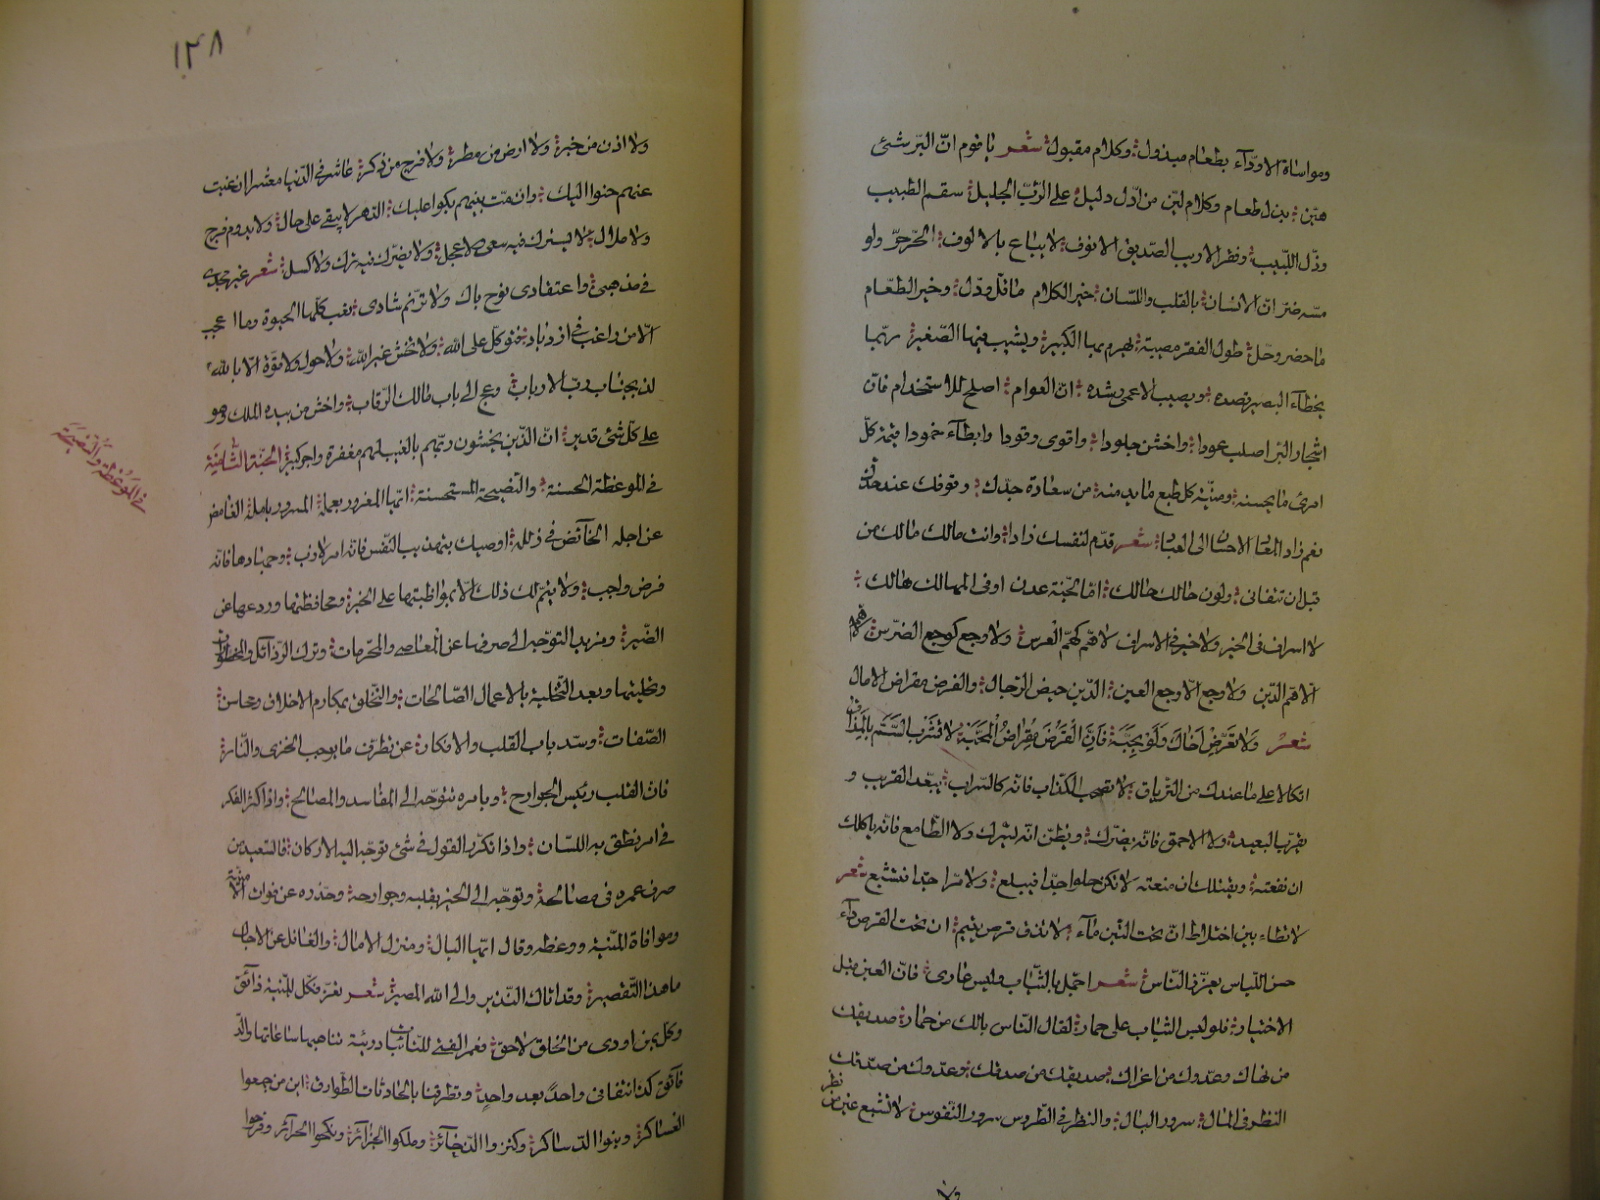 ومواساة الاودّآء بطعام مبذول؛ وكلام مقبول؛ شعر يا قوم انّ البرّ شيئ
هيّن؛ بذل طعام وكلام ليّن من ادلّ دليل؛ على الربّ الجليل؛ سقم الطبيب
وذلّ اللبيب؛ وفقر الاديب الصّديق الانوف؛ لا يباع بالالوف؛ الحرّ حرّ ولو
مسّه ضرّ انّ الانسان؛ بالقلب واللّسان؛ خير الكلام ما قلّ ودلّ؛ وخير الطّعام
ما حضر وحلّ؛ طول الفقر مصيبة؛ يهرم بها الكبير؛ ويشيب فيها الصّغير؛ ربّما
يخطآء البصير قصده؛ ويصيب الاعمى رشده؛ انّ العوام؛ اصلح للاستخدام فانّ
اشجار البرّ اصلب عودا؛ واخشن جلودا؛ واقوى وقودا وابطآء خمودا قيمة كلّ
امرئ ما يحسنه؛ ومنّية كل طبع ما يدمنه؛ من سعادة جدّك؛ وقوفك عند حدّك
نعم زاد المعاد الاحسان الى العباد؛ شعر قدّم لنفسك زادا؛ وانت مالك مالك من
قبل ان تتفانى؛ ولون حالك حالك؛ امّا لجنّة عدن او فى المهالك هالك؛
لا اسراف فى الخير ولا خير فى الاسراف لا همّ كهمّ العرس؛ ولا وجع كوجع الضّرس؛
الّا همّ الدّين ولا وجع الّا وجع العين؛ الدّين حيض الرّجال؛ والقرض مقراض الامال
شعر ولا تقرض اخاك ولو بحبّة؛ فانّ القرض مقراض المحبّة؛ لا تشرب السّمّ بالمذاق
اتكالا على ما عندك من الترياق؛ لا تصحب الكذّاب فانّه كالسّراب؛ يبعّد القريب و
يقرّب البعيد؛ ولا الاحمق فانّه يضرّك؛ ويظنّ انّه يسّرك ولا الطّامع فانّه ياكلك
ان نفعته؛ ويقتلك ان منعته لا تكن حلوا جدّا فتبلع؛ ولا مرّا جدّا فتشبع شعر
لا تطاء بين اختلاط انّ تحت التّبن مآء؛ لا تذق قرص يتيم؛ ان تحت القرص دآء
حسن اللّباس يعزّ فى النّاس؛ شعر اجمل بالثّياب وليس عارى؛ فانّ العين قبل
الاختيارة؛ فلو لبس الثّياب على حمارة لقال النّاس يا لك من حمارة؛ صديقك
من نهاك وعدّوك من اغراك؛ صديقك من صدقك؛ وعدّوك من صدّقك
النظر فى المال؛ سرور البال؛ والنظر فى الطّروس سرور النّفوس؛ لا تشبع عين من نظر
ولا
١٣٨
ولا اذن من خبر؛ ولا ارض من مطر؛ ولا فرج من ذكر؛ عاشر فى الدّنيا معشرا ان غبت
عنهم حنوا اليك؛ وان متّ بينهم بكوا عليك؛ الدّهر لا يبقى على حال؛ ولا يدوم فرح
ولا ملال؛ لا يسّرك فيه سعى ولا عجل؛ ولا يضرّك فيه ترك ولا كسل؛ شعر غير مجدى
فى مذهبى؛ واعتقادى نوح باك ولا ترنّم شادى؛ تعب كلّها الحيوة وما اعجب
الّا من راغب فى ازدياد؛ فتوكّل على الله؛ ولا تخش غير الله؛ ولا حول ولا قوّة الّا بالله؛
لذ بجناب ربّ الارباب؛ وعج الى باب مالك الرّقاب؛ واخش من بيده الملك وهو
على كلّ شئ قدير؛ انّ الذّين يخشون ربّهم بالغيب لهم مغفرة واجر كبير؛ الجنّة الثّانية
فى الموعظة الحسنة؛ والنّصيحة المستحسنة؛ ايّها المغرور بعمله؛ المسرور بامله؛ الغامض
عن اجله الخآئض فى زلله؛ اوصيك بتهذيب النّفس فانّه امر لازب؛ وجهادها فانّه
فرض واجب؛ ولا يتمّ لك ذلك الّا بمواظبتها على الخير؛ ومحافظتها وردعها عن
الضّير؛ ومزيد التوجّه الى صرفها عن المعاصى والمحرّمات؛ وترك الرّذآئل والمخطورات
وتحليتها وبعد التّخلية بالاعمال الصّالحات؛ والتّخلق بمكارم الاخلاق ومحاسن؛
الصّفات؛ وسدّ باب القلب والاذكان؛ عن تطرّق ما يوجب الخزى والنّار؛
فانّ القلب رئيس الجوارح؛ وبامره تتوجّه الى المفاسد والمصالح؛ واذا كثر الفكر
فى امر نطق به اللّسان؛ واذا تكرّر القول فى شئ توجّه اليه الاركان؛ فالسّعيد من
صرف عمره فى مصالحه؛ وتوجّه الى الخير بقلبه وجوارحه؛ وحذره عن فوات الامنية
وموافاة المنّية ووعظه وقال ايّها البال؛ ومنزل الامال؛ والغافل عن الاجال
ما هذا التّقصير؛ وقد اتاك النّذير والى الله المصير؛ شعر تعزّ فكل للمنّية ذآئق
وكلّ بمن اودى من الخلق لاحق؛ وعمر الفتى للنّائبات دريئة تناهبها ساعاتها والدّ
قآئق كذا نتفانى واحدًا بعد واحدٍ؛ وتطرقنا بالحادثات الطّوارق؛ اين من جمعوا
العساكر؛ وبنوا الدّساكر؛ وكنزوا الذّخآئر؛ وملكوا الجزآئر؛ ونكحوا الحرآئر وفرحوا
فى الموعظة والنصيحة